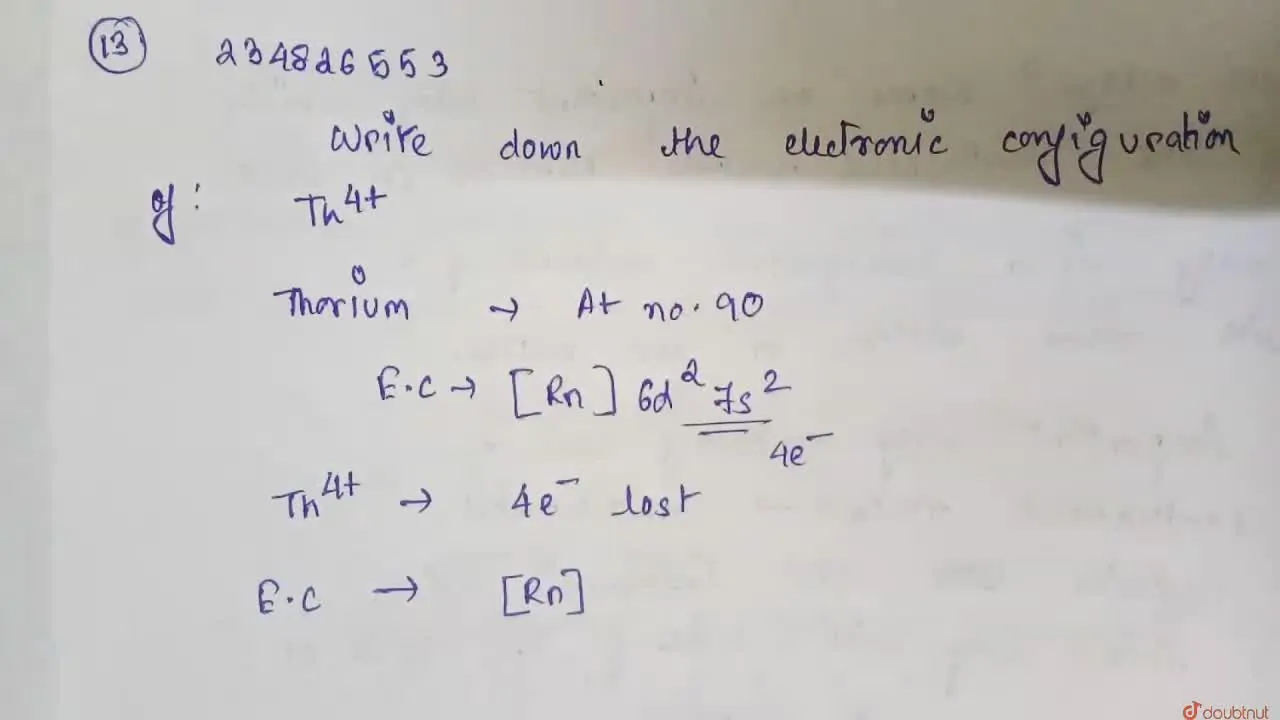 13 234826553
Write down the electronic configuration
of : Th⁴⁺
Thorium → At no. 90
E.C → [Rn] 6d² 7s²
4e⁻
Th⁴⁺ → 4e⁻ lost
E.C → [Rn]
doubtnut